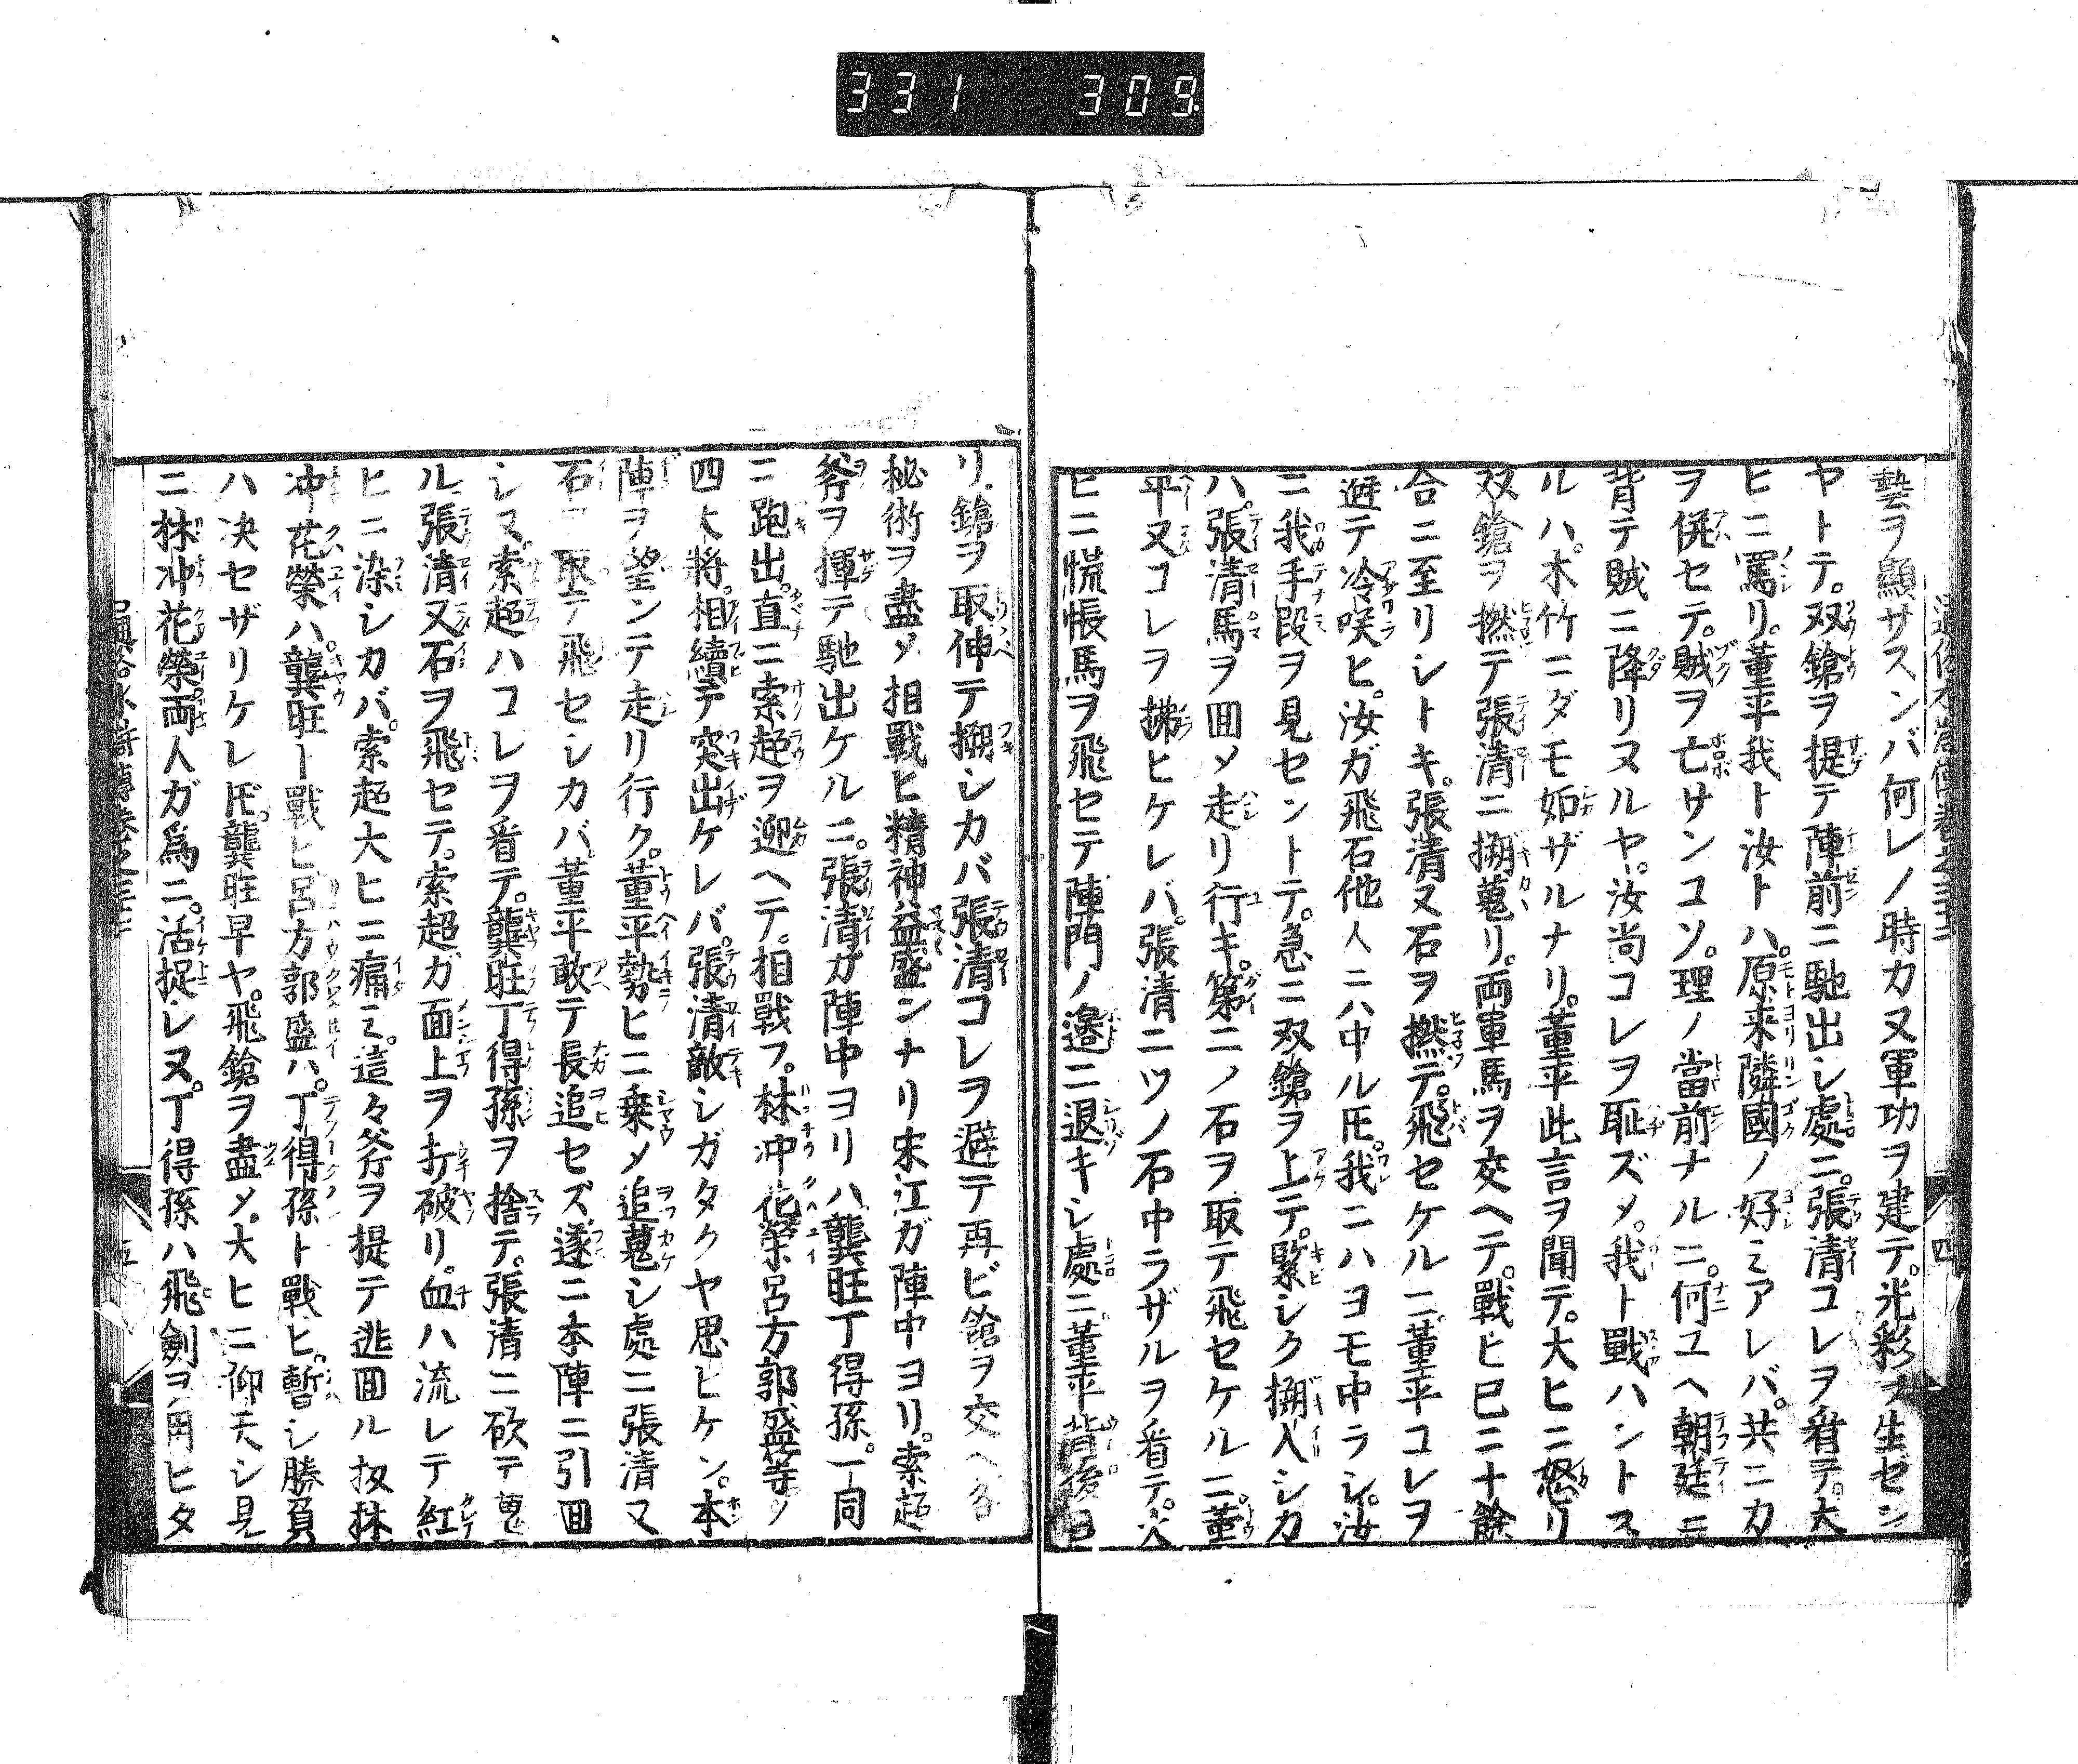 331 309
藝ヲ顯サスンバ何レノ時カ又軍功ヲ建テ。光彩ヲ生ゼン
ヤトテ。双鎗ヲ提テ陣前ニ馳出シ處ニ。張清コレヲ看テ。大
ヒニ罵リ。董平我ト汝トハ。原来隣國ノ好ミアレバ。共ニカ
ヲ併セテ。賊ヲ亡サンコソ。理ノ當前ナルニ。何ユヘ朝廷ニ
背テ賊ニ降リヌルヤ。汝尚コレヲ恥ズメ。我ト戰ハントス
ルハ。木竹ニダモ如ザルナリ。董平此言ヲ聞テ。大ヒニ怒リ
双鎗ヲ撚テ張清ニ搠蒐リ。両軍馬ヲ交ヘテ。戰ヒ已ニ十餘
合ニ至リシトキ。張清又石ヲ撚テ。飛セケルニ。董平コレヲ
避テ冷咲ヒ。汝ガ飛石他人ニハ中ル𪜈。我ニハヨモ中ラシ。汝
ニ我手段ヲ見セントテ。急ニ双鎗ヲ上テ。緊シク搠入シカ
ハ。張清馬ヲ囬メ走リ行キ。第二ノ石ヲ取テ飛セケルニ。董
平又コレヲ拂ヒケレバ。張清二ツノ石中ラザルヲ看テ。大
ヒニ慌悵馬ヲ飛セテ陣門ノ邊ニ退キシ處ニ。董平背後ヨ
四
リ鎗ヲ取伸テ搠シカバ張清コレヲ避テ再ビ鎗ヲ交ヘ各
秘術ヲ盡メ相戰ヒ精神益盛ンナリ宋江ガ陣中ヨリ。索超
斧ヲ揮テ馳出ケルニ。張清ガ陣中ヨリハ龔旺丁得孫。一同
ニ跑出。直ニ索超ヲ迎ヘテ。相戰フ。林冲花榮呂方郭盛等ノ
四大將。相續テ突出ケレバ。張清敵シガタクヤ思ヒケン。本
陣ヲ望ンテ走リ行ク。董平勢ヒニ乗メ追蒐シ處ニ張清又
石ヲ取テ飛セシカバ。董平敢テ長追セズ遂ニ本陣ニ引囬
シヌ。索超ハコレヲ看テ。龔旺丁得孫ヲ捨テ。張清ニ砍テ蒐
ル張清又石ヲ飛セテ。索超ガ面上ヲ打破リ。血ハ流レテ紅
ヒニ染シカバ。索超大ヒニ痛ミ。這々斧ヲ提テ逃囬ル扨林
冲花榮ハ。龔旺ト戰ヒ呂方郭盛ハ。丁得孫ト戰ヒ暫シ勝負
ハ决セザリケレ𪜈。龔旺早ヤ。飛鎗ヲ盡メ。大ヒニ仰天シ見
ニ林冲花榮両人ガ爲ニ。活捉レヌ。丁得孫ハ飛劍ヲ用ヒタ
五